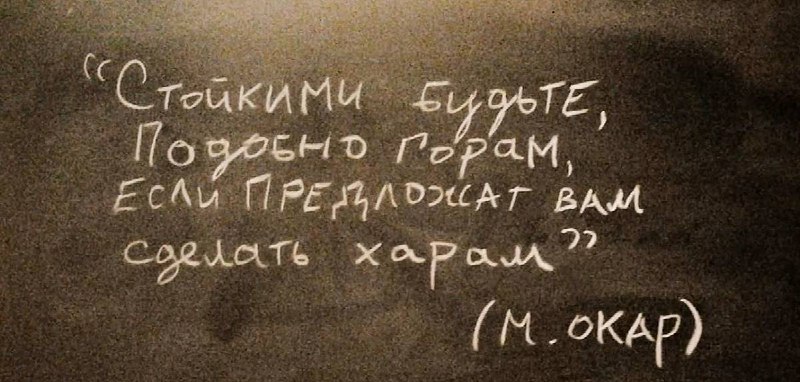 “Стойкими будьте,
Подобно горам,
Если предложат вам
сделать харам”
(М. ОКАР)